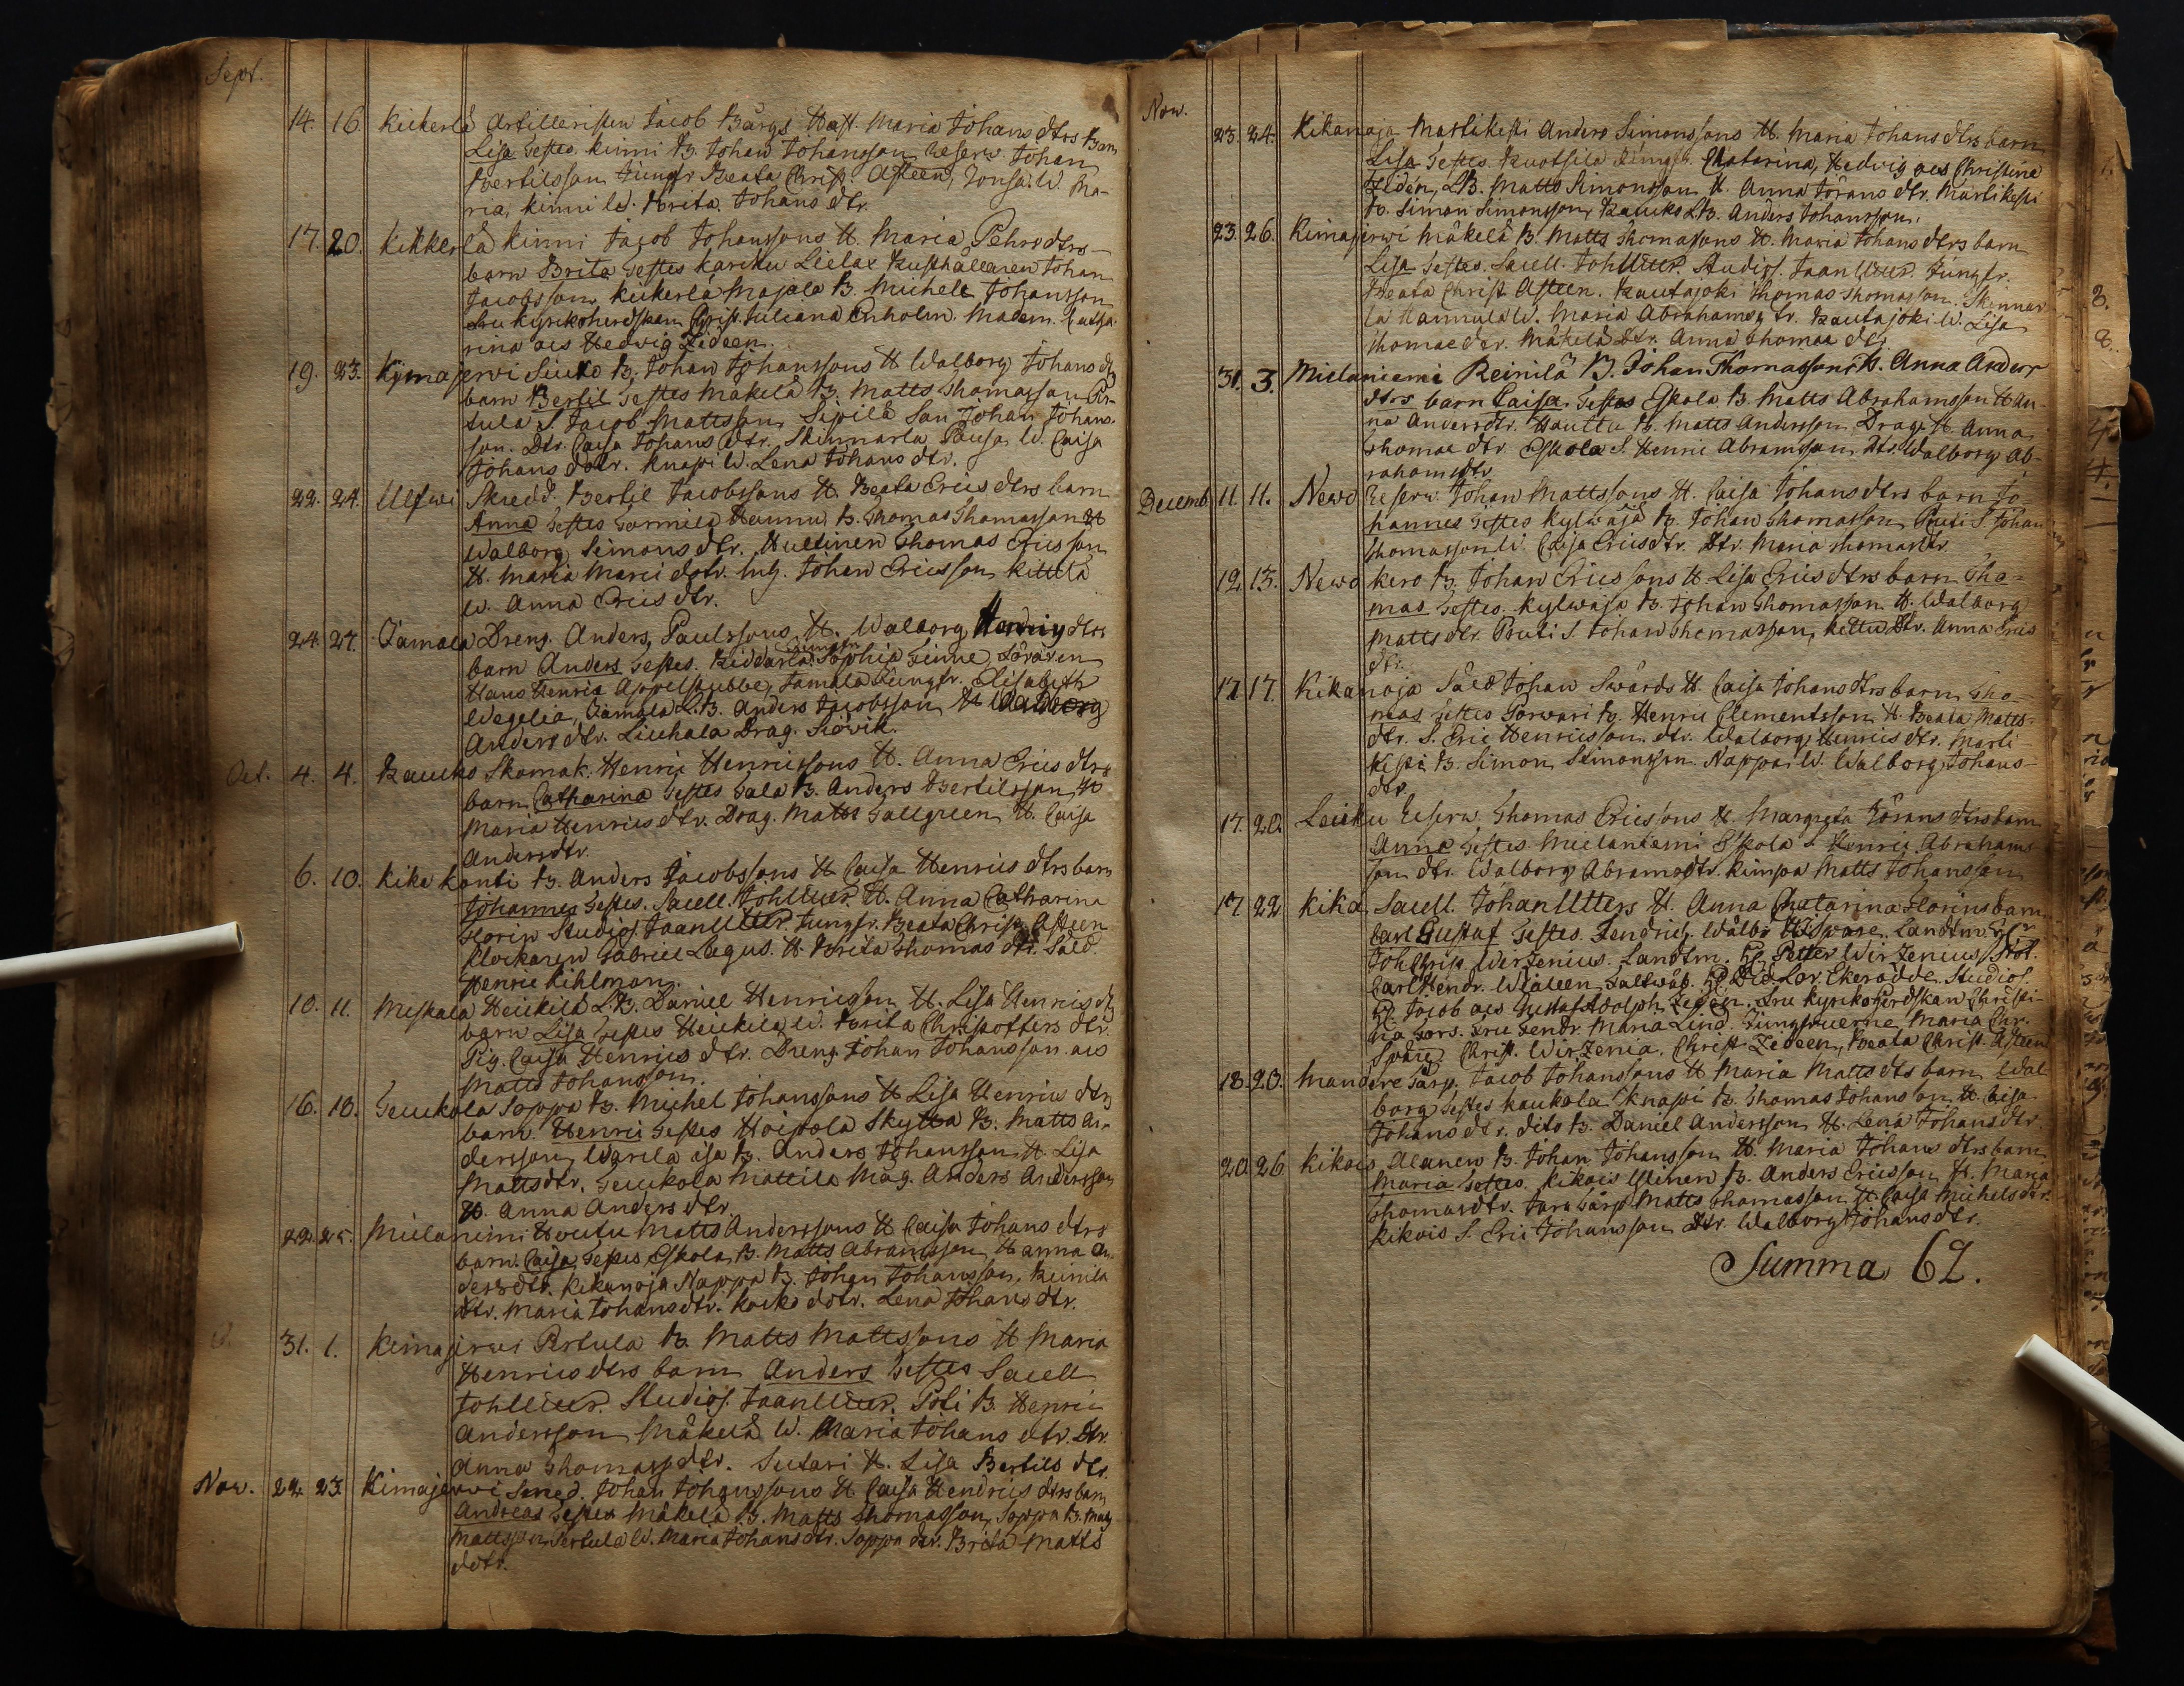 Sept.
14. 16. Kickerlä Artilleristen Jacob Bärgs Hust. Maria Johans dtrs Barn
Lisa Testes. Kinni B. Johan Johansson Reserv. Johan
Bertilsson Jungfr Beata Christ. Asteen, W. Ma-
ria, Kinni W. Brita Johans dtr.
17. 20. Kikkerlä Kinni Jacob Johanssons H. Maria Pehrs dtrs
barn Brita Testes Rusthållaren Johan
Jacobsson, Kickerlä Majala B. Michell Johansson
Fru Kyrkoherdskan Christ. Juliana Enholm. Madem. Catha-
rina och Hedvig Zedeen.
19. 23. Kimajerwi B. Johan Johanssons H Walborg Johans dtrs
barn Bertil Testes Mäkelä B. Matts Thomasson Per-
tula S. Jacob Mattsson, Sipilä Son Johan Johans-
son. Dtr. Caisa Johans dtr. Skinnarla W. Caisa
Johans dotr. Knapi W. Lena Johans dtr.
22. 24. Ulfwi Skredd. Bertil Jacobssons H. Beata Erics dtrs barn
Anna Testes Hannu B. Thomas Thomasson H
Walborg Simons dtr. Thomas Ericsson
H. Maria Marci dotr. Johan Ericsson
W. Anna Erics dtr.
24. 27. Dreng. Anders Paulssons H. Walborg Henrics dtrs
barn Anders Testes. Jungfr. Sophia
Hans Henric Appelgubbe, Jamala Jungfr. Elisabeth
Wegelia, B. Anders Jacobsson H Walborg
Anders dtr. Liuhala Drag. Siövik.
Oct. 4. 4. Skomak. Henric Henricssons H. Anna Erics dtrs
barn Catharina Testes Sala B. Anders Bertilsson H
Maria Henrics dtr. Drag. Matts Sallgreen H. Caisa
Andersdtr.
6. 10. Kika Konti B. Anders Jacobssons H Caisa Henrics dtrs barn
Johannes Testes. Sacell. Joh Utter. H. Anna Catharina
Florin Studios. Jaan Utter. Jungfr. Beata Christ. Asteen
Klockaren Gabriel Legus. H. Brita Thomas dtr. Sald.
Henric Kihlman.
10. 11. Meskala Heickilä L.B. Daniel Henricsson H. Lisa Henrics dtrs
barn Lisa Testes Heickilä W. Brita Christoffers dtr.
Pig. Caisa Henrics dtr. Dreng Johan Johansson och
Matts Johansson.
16. 18. Seuckola Soppa B. Michel Johanssons H Lisa Henrics dtrs
barn. Henric Testes Hoipola Skytta B. Matts An-
dersson, Warila B. Anders Johansson H. Lisa
Mattsdtr. Seuckola Mattila Måg. Anders Andersson
H. Anna Anders dtr.
22. 25. Mielanimi Houtu Matts Anderssons H Caisa Johans dtrs
barn. Caisa Testes Eskola B. Matts Abramsson, H Anna An-
dersdtr. Kikanoja Nappa B. Johan Johansson, Reinilä
dtr. Maria Johansdtr. dotr. Lena Johans dtr.
31. 1. Kimajerwi Pertula B. Matts Mattssons H Maria
Henrics dtrs barn Anders Testes Sacell
Joh Utter. Studios. Jaan Utter. B. Henric
Andersson Mäkelä W. Maria Johans dtr. Dtr.
Anna Thomass dtr. Sutari H. Lisa Bertils dtr.
Nov. 22. 23. Kimajerwi Smed. Johan Johanssons H Caisa Hendrics dtrs barn
Andreas Testes Mäkelä B. Matts Thomasson, Soppa B. Matts
Mattsson, Pertula W. Maria Johansdtr. Soppa dtr. Brita Matts
dotr.
Nov.
23. 24. Kikanoja Martikesti Anders Simonssons H. Maria Johans dtrs barn
Lisa Testes. Jungfr. Chatarina, Hedvig och Christine
Zedén, L.B. Matts Simonsson H. Anna Jörans dtr. Martikesti
B. Simon Simonsson, L.B. Anders Johansson.
23. 26. Kimajerwi Mäkelä B. Matts Thomassons H. Maria Johans dtrs barn
Lisa Testes. Sacell. Joh Utter. Studios. Jaan Utter. Jungfr.
Beata Christ Asteen. Rautajoki Thomas Thomasson. Skinnar
la Hannula W. Maria Abrahams dtr. Rautajoki W. Lisa
Thomae dtr. Mäkelä Dtr. Anna Thomae dtr.
31. 3. Mielaniemi Reinilä B. Johan Thomassons H. Anna Anders
dtrs barn Caisa. Testes Eskola B. Matts Abrahamsson H An-
na Andersdtr. Hauttu B. Matts Andersson, Drag. H Anna
Thomae dtr. Eskola S. Henric Abramsson, Dtr. Walborg Ab-
rahamsdtr.
Decemb. 11. 11. Newo Reserv. Johan Mattssons H. Caisa Johans dtrs barn Jo-
hannes Testes Kylwäjä B. Johan Thomasson, Pruti S Johan
Thomasson W. Caisa Ericsdtr. Dtr. Maria Thomasdtr.
12. 13. Newo Kero B. Johan Ericssons H Lisa Erics dtrs barn Tho-
mas Testes. Kylwäjä B. Johan Thomasson H. Walborg
Matts dtr. Pruti S. Johan Thomasson, Kettu Dtr. Anna Erics
dtr.
17. 17. Kikanoja Sald Johan Swärds H. Caisa Johans dtrs barn Tho-
mas Testes Porwari B. Henric Clementsson H. Beata Matts-
dtr. S. Eric Henricsson. dtr. Walborg Henrics dtr. Marti-
kesti B. Simon Simonsson. Nappai W. Walborg Johans-
dtr.
17. 20. Reserv. Thomas Ericssons H. Margreta Jörans dtrs barn
Anna Testes. Mielaniemi Eskola S Henric Abrahams
son dtr. Walborg Abramsdtr. Kimpa Matts Johansson
17. 22. Kika. Sacell. Johan Utters H. Anna Chatarina Florins barn
Carl Gustaf Testes. Fendrig. Landtm.
Joh Christ. Werzenius. Landtm. Petter Wirzenius,
Carl Hendr. Ekerodde. Studios.
Jacob och Gustaf Adolph Zedén. Fru Kyrkoherdskan Christi-
na Fors. Fru Fendr. Maria Lind. Jungfruerne Maria Chr.
Christ. Wirzenia. Christ. Zedeen, Beata Christ. Asteen
18. 20. Mandere Torp. Jacob Johanssons H Maria Matts dts barn Wal
borg Testes Kaukola Knapi B. Thomas Johansson H. Caisa
Johans dtr. dito B. Daniel Andersson H. Lena Johans dtr.
20. 26. Kikois Alanen B. Johan Johansson H. Maria Johans dtrs barn
Maria Testes. Kikois Ulinen B. Anders Ericsson H. Maria
Thomasdtr. Matts Thomasson H. Caisa Michelsdtr.
Kikois S. Eric Johansson Dtr. Walborg Johansdtr.
Summa 62.